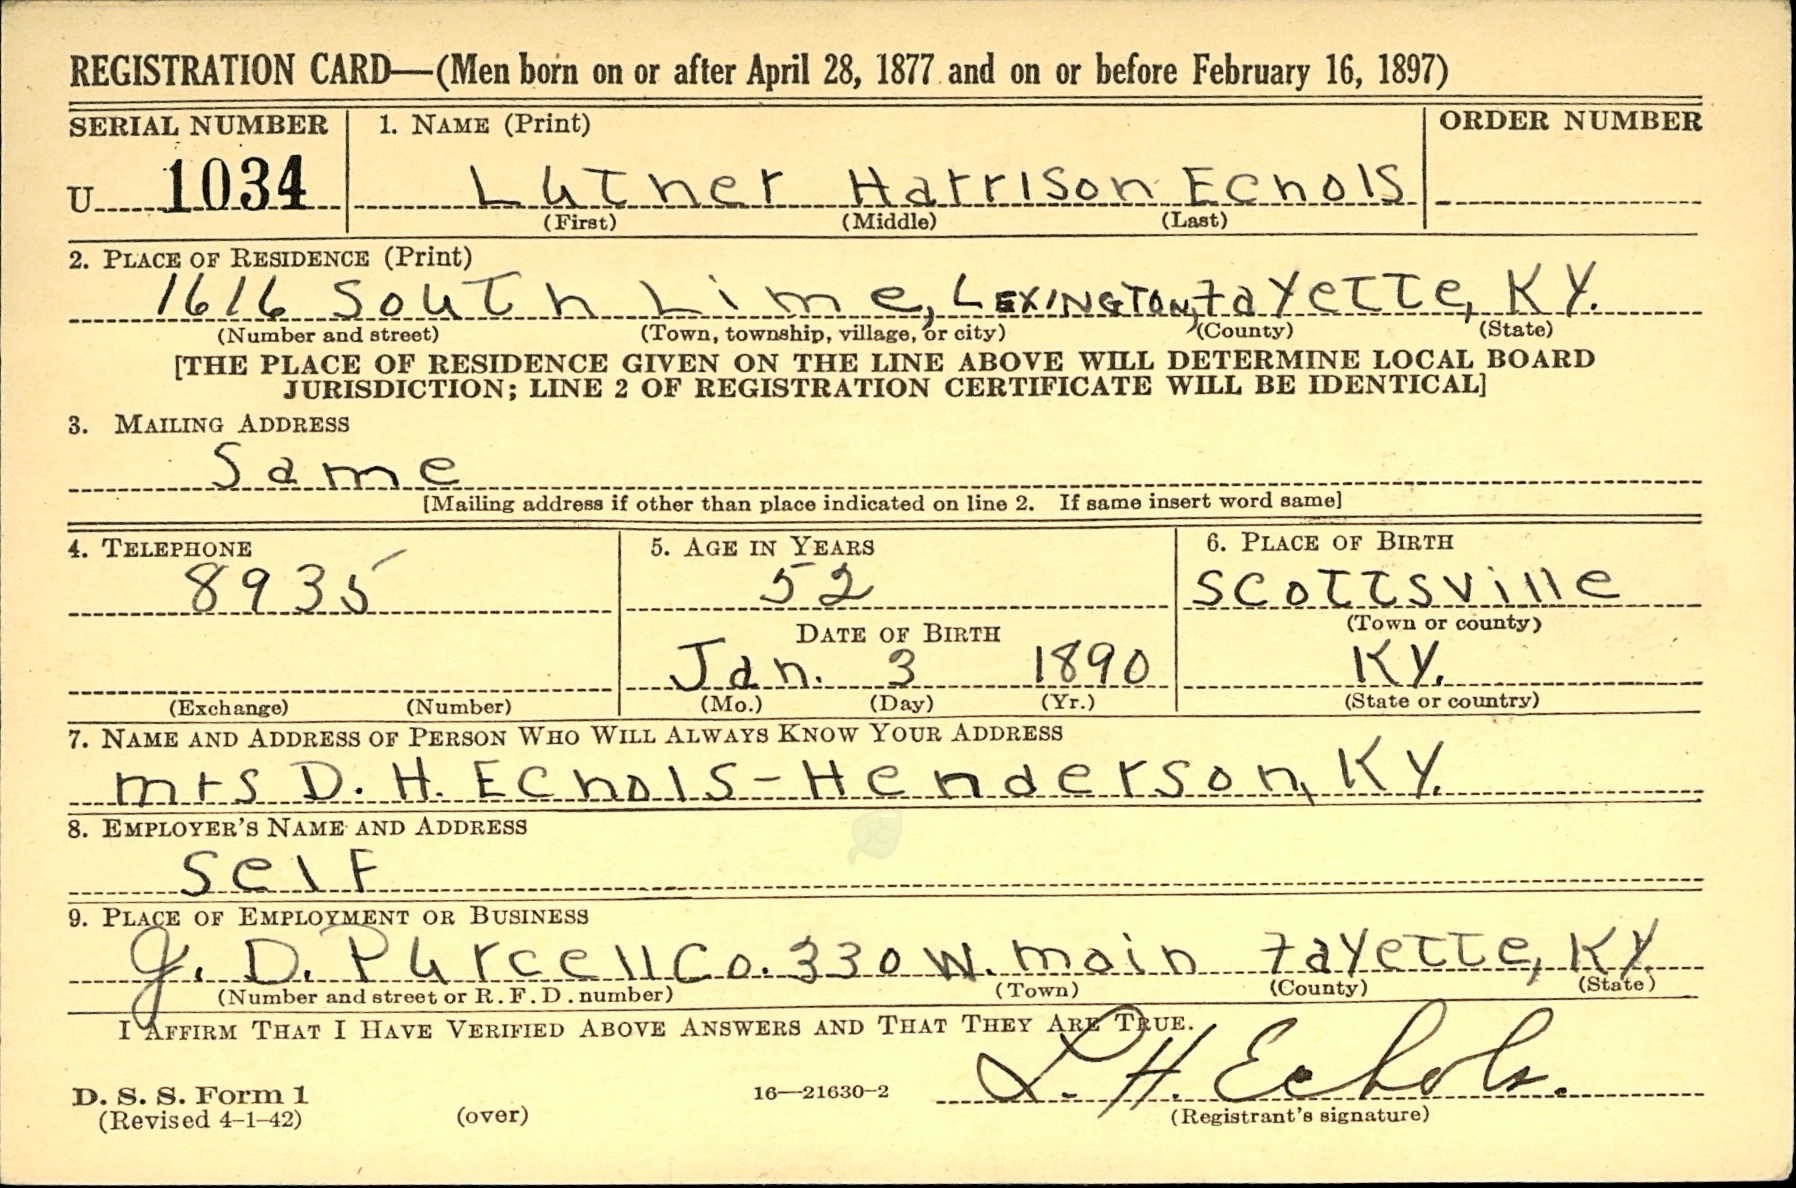 REGISTRATION CARD—(Men born on or after April 28, 1877 and on or before February 16, 1897)
SERIAL NUMBER 1. NAME (Print) ORDER NUMBER
U 1034 Luther Harrison Echols
(First) (Middle) (Last)
2. PLACE OF RESIDENCE (Print)
1616 South Lime, LEXINGTON, Fayette, KY.
(Number and street) (Town, township, village, or city) (County) (State)
[THE PLACE OF RESIDENCE GIVEN ON THE LINE ABOVE WILL DETERMINE LOCAL BOARD
JURISDICTION; LINE 2 OF REGISTRATION CERTIFICATE WILL BE IDENTICAL]
3. MAILING ADDRESS
Same
[Mailing address if other than place indicated on line 2. If same insert word same]
4. TELEPHONE 5. AGE IN YEARS 6. PLACE OF BIRTH
8935 52 Scottsville
(Town or county)
DATE OF BIRTH
Jan. 3 1890 KY.
(Exchange) (Number) (Mo.) (Day) (Yr.) (State or country)
7. NAME AND ADDRESS OF PERSON WHO WILL ALWAYS KNOW YOUR ADDRESS
Mrs D. H. Echols - Henderson, KY.
8. EMPLOYER'S NAME AND ADDRESS
Self
9. PLACE OF EMPLOYMENT OR BUSINESS
J. D. Purcell Co. 330 W. Main Fayette, KY.
(Number and street or R. F. D. number) (Town) (County) (State)
I AFFIRM THAT I HAVE VERIFIED ABOVE ANSWERS AND THAT THEY ARE TRUE.
L. H. Echols.
D. S. S. Form 1 16—21630-2
(Revised 4-1-42) (over) (Registrant's signature)